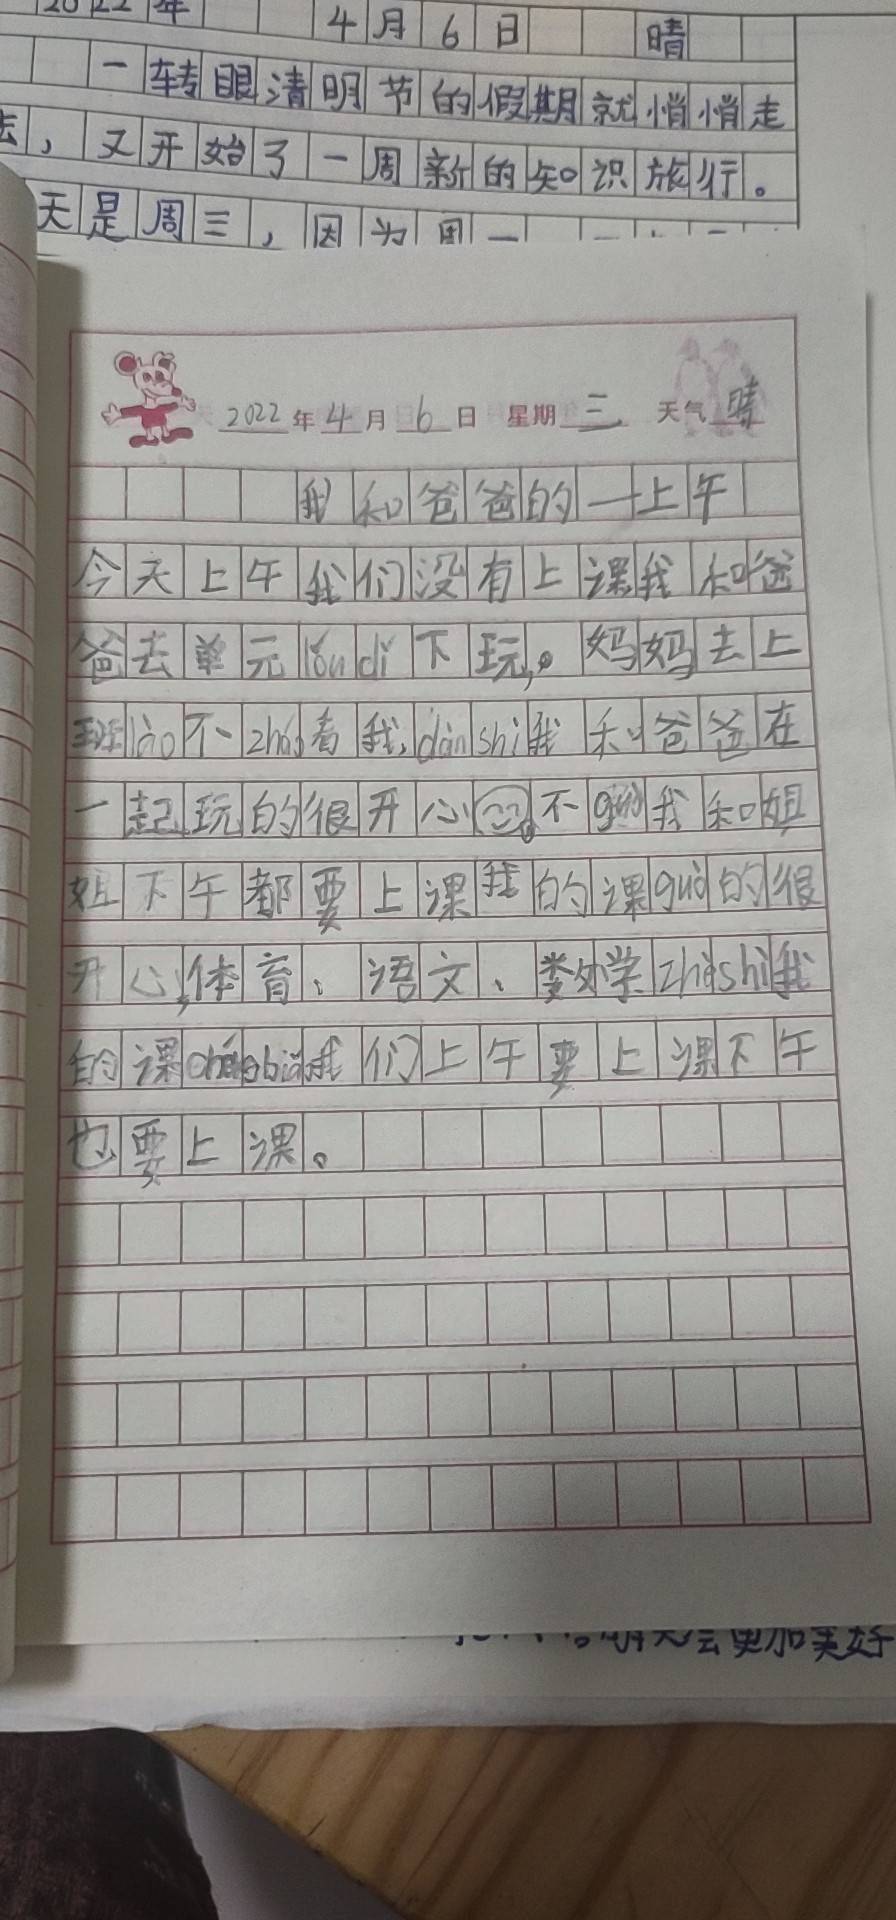 2022年 4月6日 晴
一转眼清明节的假期就悄悄走
去,又开始了一周新的知识旅行。
天是周三,因为周一
2022年4月6日 星期三 天气晴
我和爸爸的一上午
今天上午我们没有上课我和爸
爸去单元lóu dǐ下玩。妈妈去上
班lào不zháo着我,dàn shì我和爸爸在
一起玩的很开心不guò我和姐
姐下午都要上课我的课guò的很
开心,体育、语文、数学zhè shì我
的课我们上午要上课下午
也要上课。
明天会更加美好